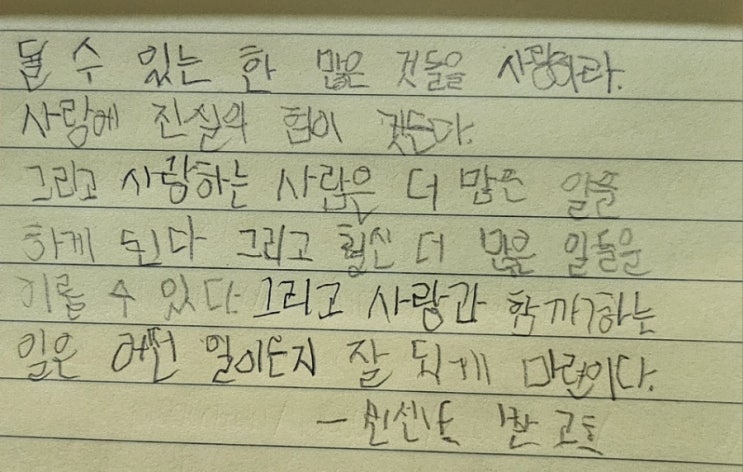 될 수 있는 한 많은 것들을 사랑하라.
사랑에 진실의 힘이 깃든다.
그리고 사랑하는 사람은 더 많은 일을
하게 된다 그리고 훨신 더 많은 일들을
이룰 수 있다 그리고 사랑과 함께하는
일은 어떤 일이든지 잘 되게 마련이다.
- 빈센트 반 고흐